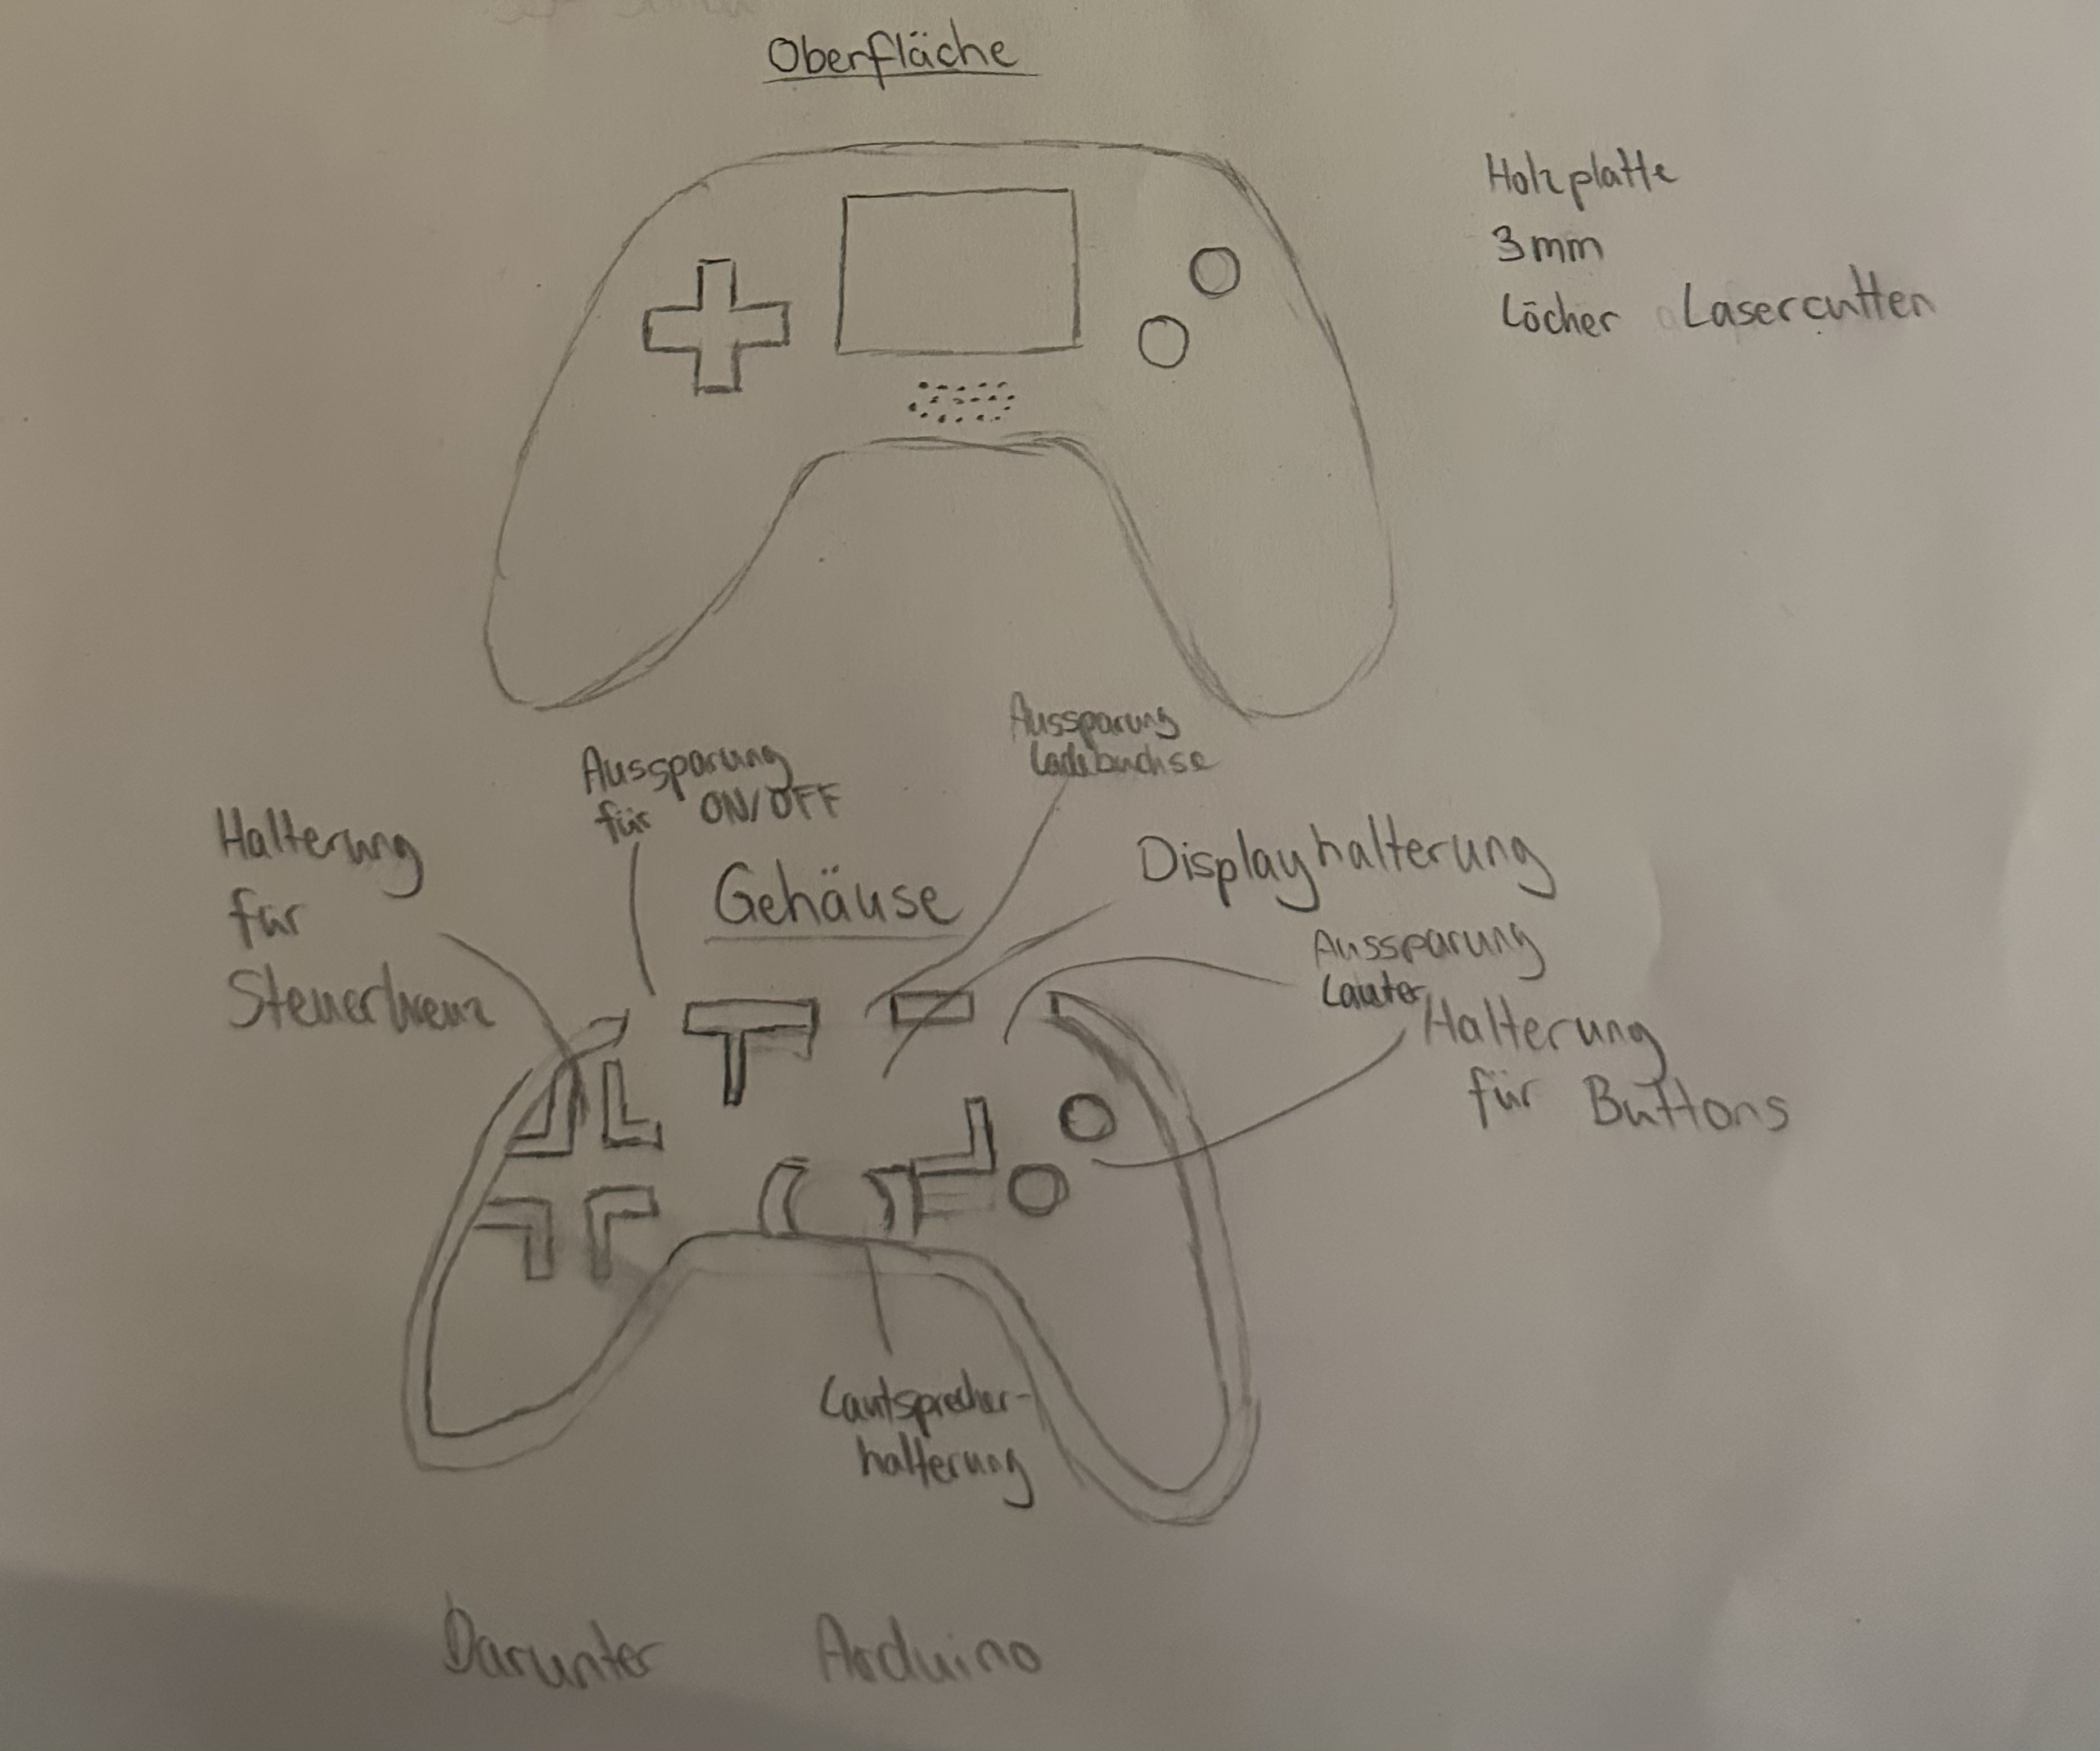 Oberfläche
Holzplatte
3mm
Löcher Lasercutten
Aussparung
Ladebuchse
Aussparung
für ON/OFF
Halterung
für
Steuerkreuz
Gehäuse
Displayhalterung
Aussparung
Lauter
Halterung
für Buttons
Lautsprecher-
halterung
Darunter Arduino